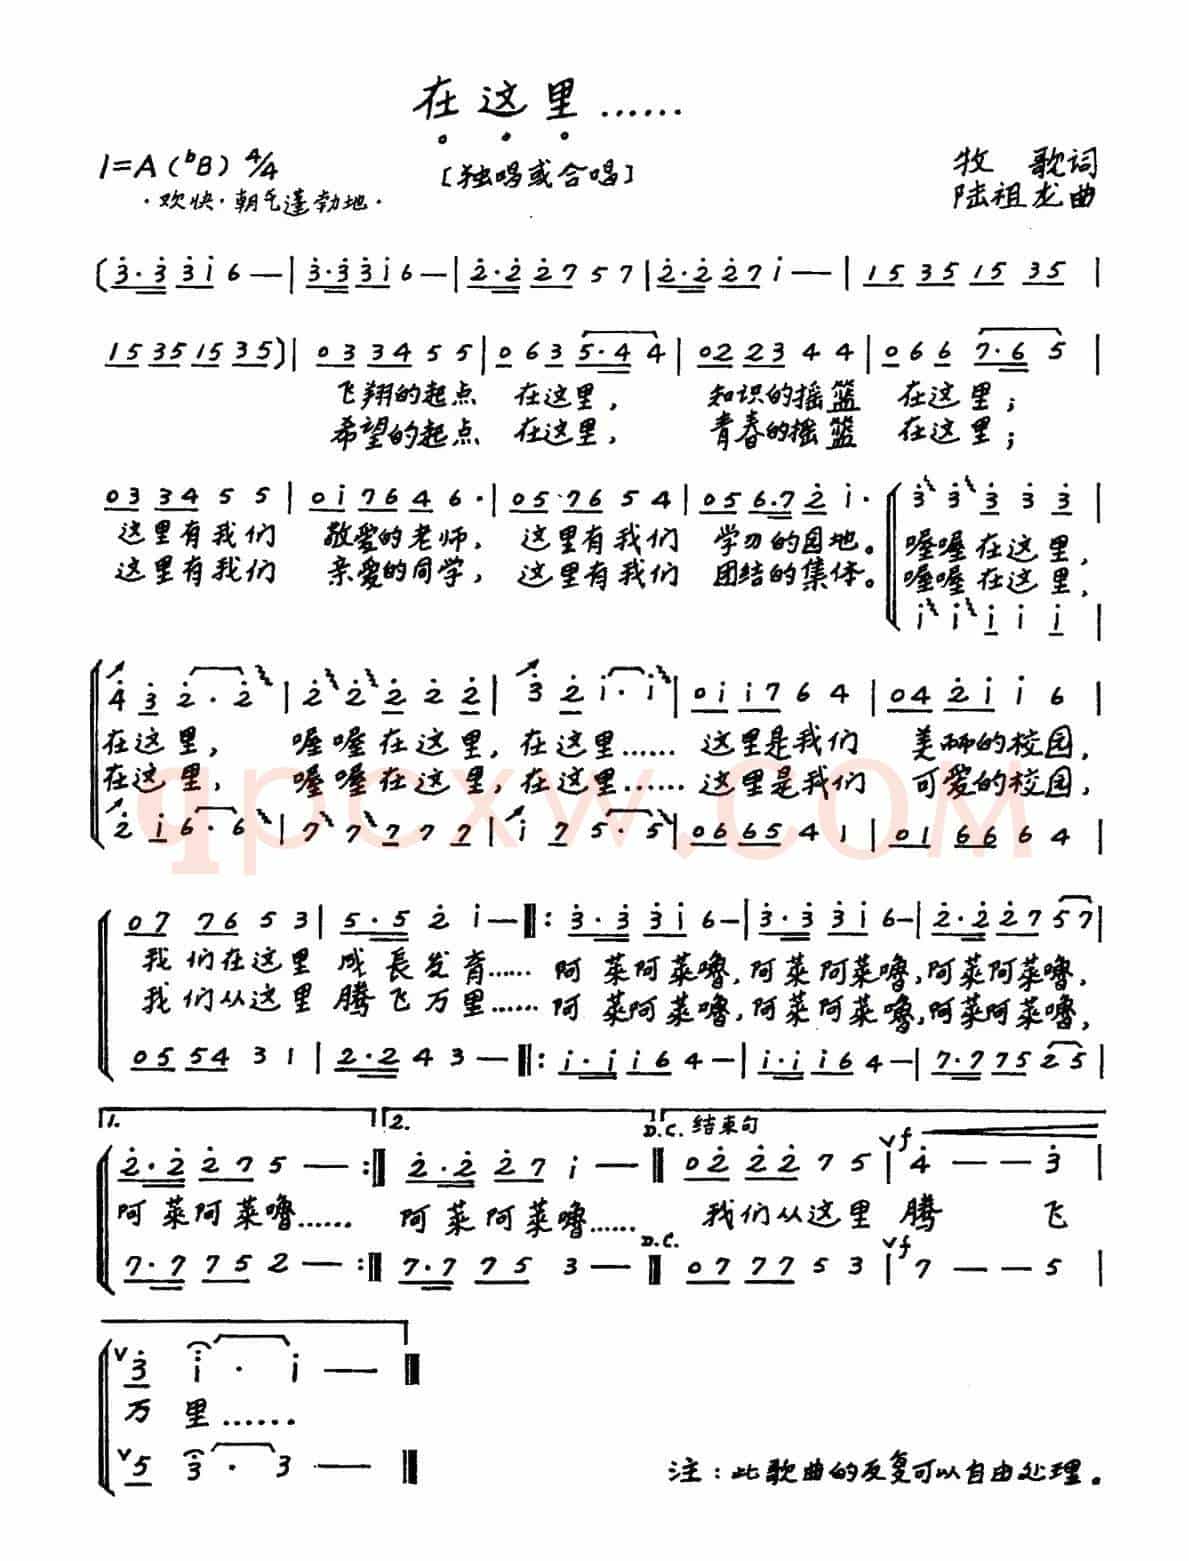 在这里……
1=A（ᵇB）4/4
［独唱或合唱］
牧 歌词
·欢快·朝气蓬勃地·
陆祖龙曲
(3·3 3i 6 — | 3·3 3i 6 — | 2·2 27 5 7 | 2·2 27 i — | 15 35 15 35 |
15 35 15 35) | 03 34 5 5 | 06 3 5·4 4 | 02 23 4 4 | 06 6 7·6 5 |
飞翔的起点 在这里， 知识的摇篮 在这里；
希望的起点 在这里， 青春的摇篮 在这里；
03 34 5 5 | 0i 76 4 6· | 05·76 5 4 | 05 6·7 2 i· | 3 3 3 3 3 |
这里有我们 敬爱的老师， 这里有我们 学习的园地。 喔喔在这里，
这里有我们 亲爱的同学， 这里有我们 团结的集体。 喔喔在这里，
i i i i i |
4 3 2·2 | 2 2 2 2 2 | 3 2 i·i | 0i i76 4 | 04 2i i 6 |
在这里， 喔喔在这里，在这里…… 这里是我们 美丽的校园，
在这里， 喔喔在这里，在这里…… 这里是我们 可爱的校园，
qpcxw.COM
2 i 6·6 | 7 7 7 7 7 | i 7 5·5 | 06 65 4 1 | 01 66 6 4 |
07 76 5 3 | 5·5 2 i — ‖: 3·3 3i 6 — | 3·3 3i 6 — | 2·2 27 57 |
我们在这里 成長发育…… 阿莱阿莱噜，阿莱阿莱噜，阿莱阿莱噜，
我们从这里 腾飞万里…… 阿莱阿莱噜，阿莱阿莱噜，阿莱阿莱噜，
05 54 3 1 | 2·2 4 3 — ‖: i·i i6 4 — | i·i i6 4 — | 7·7 75 25 |
1. 2. D.C. 结束句
2·2 27 5 — :‖ 2·2 27 i — ‖ 02 22 7 5 | ᵛf 4 — — 3 |
阿莱阿莱噜…… 阿莱阿莱噜…… 我们从这里 腾 飞
D.C.
7·7 75 2 — :‖ 7·7 75 3 — ‖ 07 77 5 3 | ᵛf 7 — — 5 |
ᵛ3 i · i — ‖
万 里……
ᵛ5 3 · 3 — ‖
注：此歌曲的反复可以自由处理。